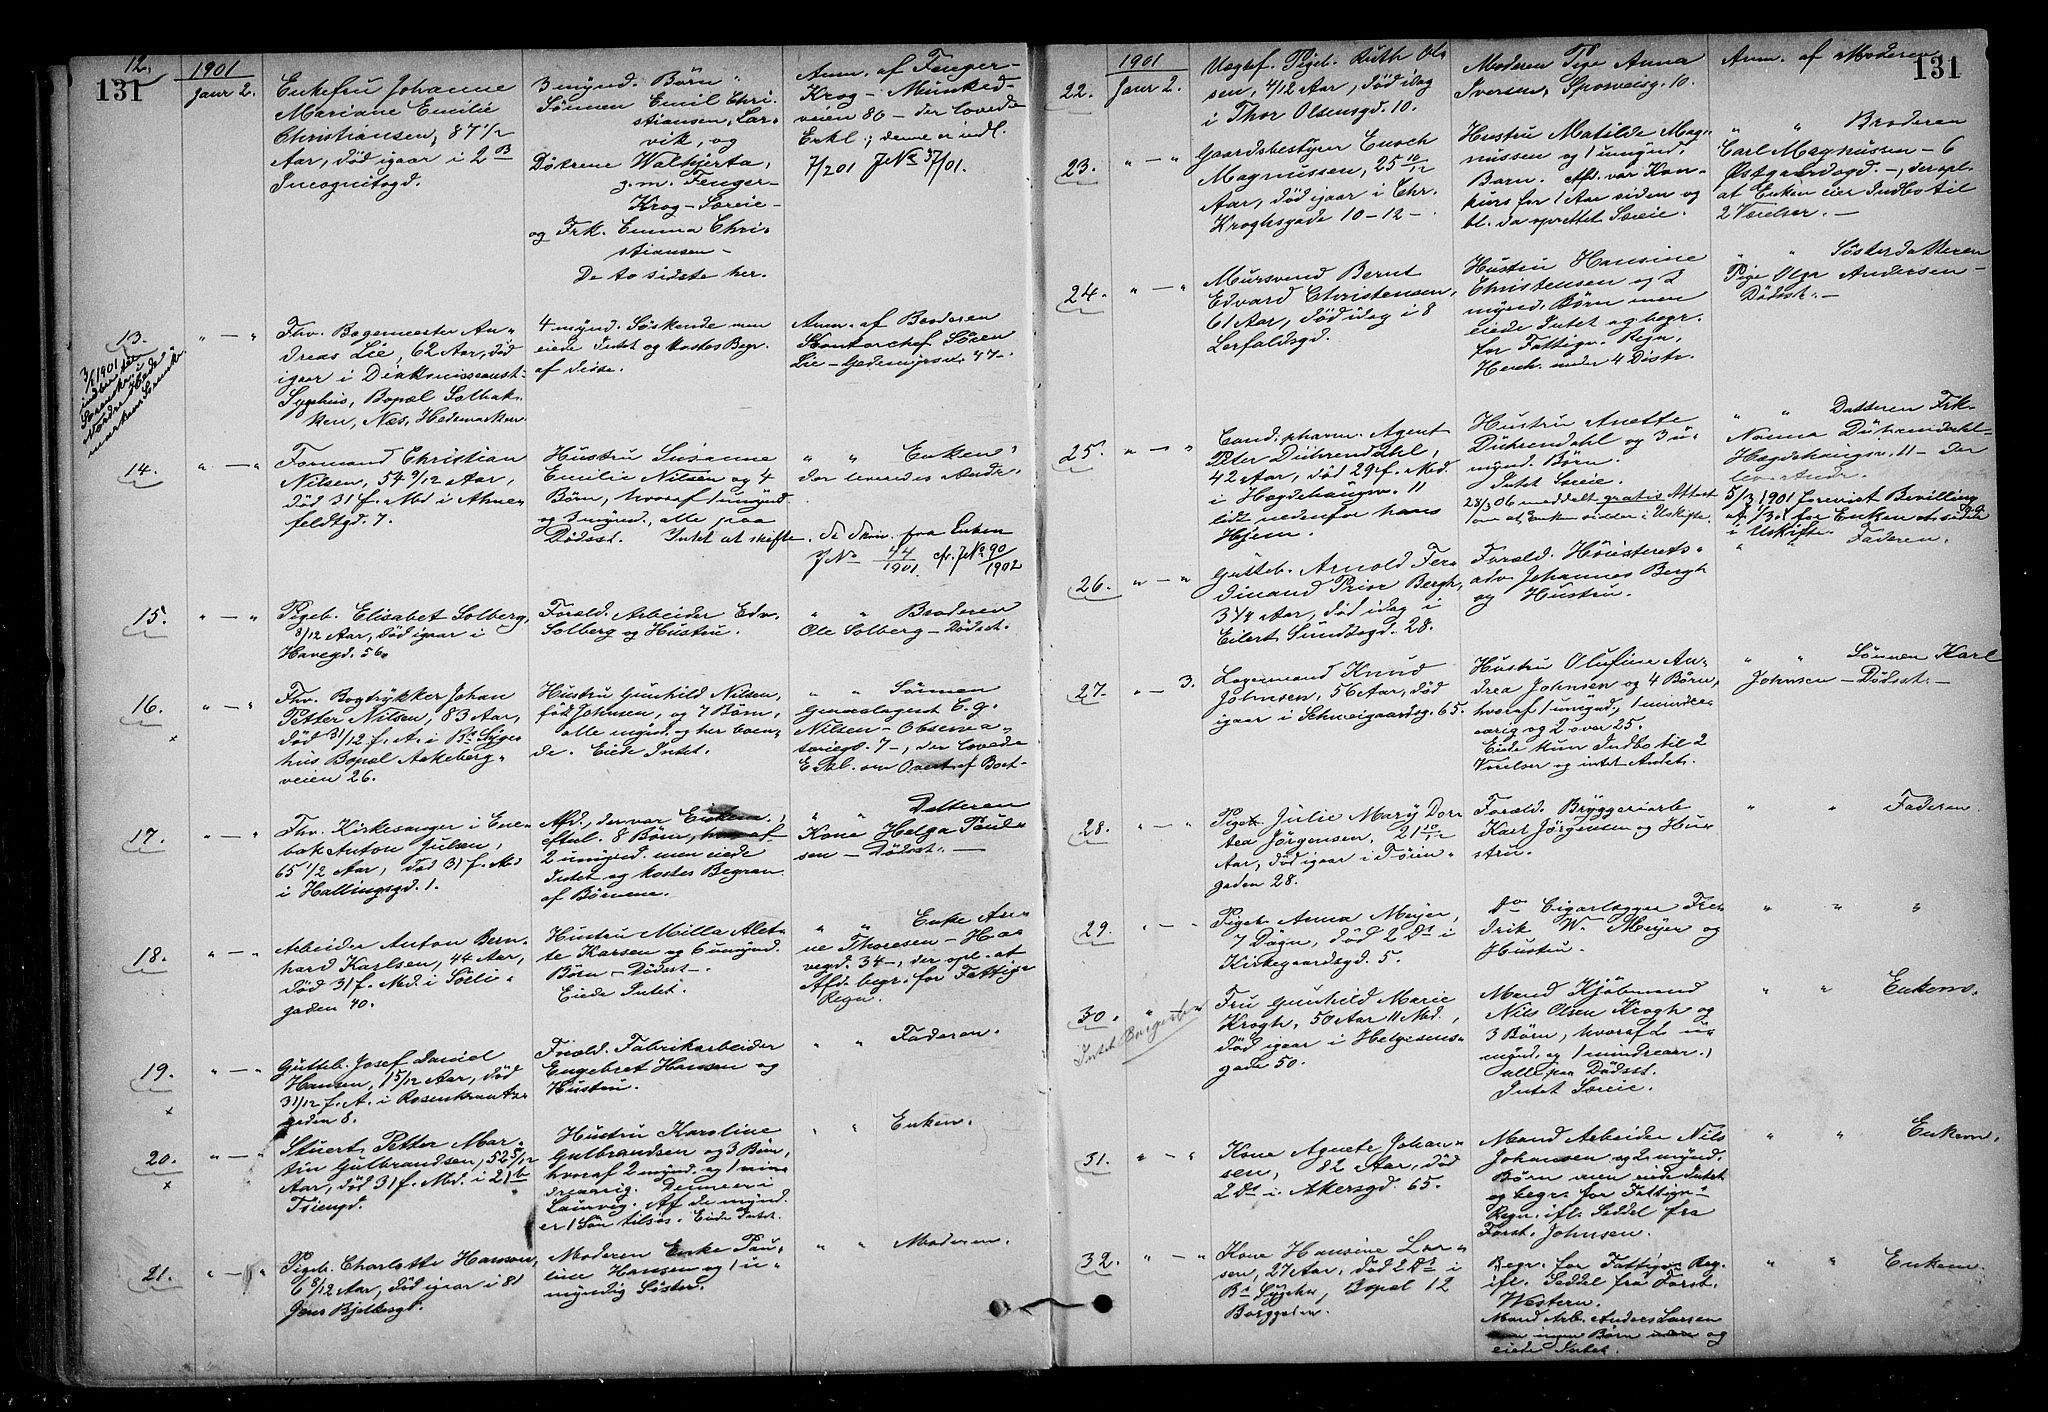 131
12.
1901
Januar 2.
Enkefru Johanne
Mariane Emilie
Christiansen, 87 1/2
Aar, död igaar i 2 B
Incognitogd.
3 mynd. Börn
Sönnen Emil Chri-
stiansen, Lar-
vik, og
Döttrene
g.m. Fenger-
Krog - Særeie -
og Frk. Emma Chri-
stiansen -
De to sidste her.
Anm. af Fenger-
Krog - Munked-
veien 80 - der lovede
Erkl.; denne er indl.
7/2 01 JNo 37/01.
13.
" — "
3/1 1901
Fhv. Bagemester An-
dreas Lie, 62 Aar, död
igaar i Diakonisseanst.
Sygehus, Bopæl Solbak-
ken, Næs, Hedemarken
4 mynd. Söskende men
eiede Intet og kostes Begr.
af disse.
Anm. af Broderen
Kontorchef Sören
Lie - Gedemyrsv. 47 -.
14.
" — "
Formand Christian
Nilsen, 54 9/12 Aar,
död 31 f. Md i Ahle-
feldtgd. 7.
Hustru Susanne
Emilie Nilsen og 4
Börn, hvoraf 1 umynd.
og 3 mynd., alle paa
Dödsst. Intet at skifte.
" " Enken
der leveredes Andr.
fra Enken
JNo 44/1901. cfr. JNo 90/1902
15.
" — "
Pigeb. Elisabet Solberg,
3/12 Aar, död igaar i
Havegd. 56.
Foræld. Arbeider Edv.
Solberg og Hustru.
" " Broderen
Ole Solberg - Dödsst.
16.
x
" — "
Fhv. Bogtrykker Johan
Petter Nilsen, 83 Aar,
död 31/12 f. A. i Bs Syge-
hus Bopæl Aakeberg-
veien 26.
Hustru Gunhild Nilsen,
föd Johnsen, og 7 Börn,
alle mynd. og her boen-
de. Eiede Intet.
" " Sönnen
Generalagent E. G.
Nilsen - Observa-
toriegd. 7 -, der lovede
Erkl. om Overt. af Boet -
17.
" — "
Fhv. Kirkesanger i Ene-
bak Anton Julsen,
65 1/2 Aar, död 31 f. Md
i Hallingsgd. 1.
Afd., der var Enkem.,
efterl. 8 Börn, hvoraf
2 umynd. men eiede
Intet og kostes Begrav.
af Börnene.
" " Datteren
Kone Helga Paul-
sen - Dödsst. -
18.
" — "
Arbeider Anton Bern-
hard Karlsen, 44 Aar,
död 31 f. Md. i Sölli-
gaden 40.
Hustru Milla Alet-
te Karsen og 6 umynd.
Börn - Dödsst -.
Eiede Intet.
" " Enke An-
ne Thoresen - Ha-
vegd. 34 -, der opl. at
Afd. begr. for Fattigv.
Regn.
19.
x
" — "
Gutteb. Josef Daniel
Hansen, 1 5/12 Aar, död
31/12 f. A. i Rosenkrantz-
gaden 8.
Foræld. Fabrikarbeider
Engebret Hansen og
Hustru.
" " Faderen.
20.
x
" — "
Stuert Petter Mar-
tin Gulbrandsen, 52 5/12
Aar, död 31 f. Md. i 21 b
Töiengd.
Hustru Karoline
Gulbrandsen og 3 Börn,
hvoraf 2 mynd. og 1 min-
dreaarig. Denne er i
Laurvig. Af de mynd.
er 1 Sön tilsös. Eiede Intet.
" " Enken.
21.
" — "
Pigeb. Charlotte Hansen,
8/12 Aar, död igaar i 81
Jens Bjelkesgt.
Moderen Enke Pau-
line Hansen og 1 u-
myndig Söster.
" " Moderen.
131
1901
22.
Januar 2.
Uægtef. Pigeb. Ruth Ol-
sen, 4/12 Aar, död idag
i Thor Olsensgd. 10.
Moderen Pige Anna
Iversen, Sporveisg. 10.
Anm. af Moderen
23.
" — "
Gaardsbestyrer Enoch
Magnussen, 25 11/12
Aar, död igaar i Chr.
Kroghsgade 10-12 -.
Hustru Matilde Mag-
nussen og 1 umynd.
Barn. Afd. var Kon-
kurs for 1 Aar siden og
bl. da oprettet Særeie.
" " Broderen
Carl Magnussen - 6
Östgaardsgd. -, der opl.
at Enken eier Indbo til
2 Værelser. -
24.
" — "
Mursvend Bernt
Edvard Christensen,
61 Aar, död idag i 8
Lerfaldsgd.
Hustru Hansine
Christensen og 2
mynd. Börn men
eiede Intet og begr.
for Fattigv. Regn,
Henh. under 4 Distr.
" " Sösterdatteren
Pige Olga Andersen -
Dödsst. -
25.
" — "
Cand. pharm. Agent
Peter Dührendahl,
42 Aar, död 29 f. Md.
i Hægdehaugsv. 11
lidt nedenfor hans
Hjem.
Hustru Anette
Dührendahl og 3 u-
mynd. Börn.
Intet Særeie.
28/3 06 meddelt gratis Attest
om at Enken sidder i Uskifte.
" " Datteren Frk.
Nanna Dührendahl -
Hægdehaugsv. 11 - der
lev. Andr.
5/3 1901 forevist Bevilling
for Enken at sidde
i Uskifte.
26.
" — "
Gutteb. Arnold Fer-
dinand Prior Bergh,
3 1/4 Aar, död idag i
Eilert Sundtsgd. 28.
Foræld. Höiesterets-
adv. Johannes Bergh
og Hustru.
" " Faderen.
27.
" — 3.
Lagermand Knud
Johnsen, 56 Aar, död
igaar i Schweigaardsg. 65.
Hustru Olufine An-
drea Johnsen og 4 Börn,
hvoraf 1 umynd., 1 mindre-
aarig og 2 over 25.
Eiede kun Indbo til 2
Værelser og intet Andet.
" " Sönnen Karl
Johnsen - Dödsst. -
28.
" — "
Pigeb. Julie Mary Doro-
tea Jörgensen, 2 10/12
Aar, död igaar i Töien-
gaden 28.
Foræld. Bryggeriarb.
Karl Jörgensen og Hu-
stru.
" " Faderen.
29.
" — "
Pigeb. Anna Meyer,
7 Dögn, död 2 Ds i
Kirkegaardsgd. 5.
Do Cigarlægger Fre-
drik W. Meyer og
Hustru.
" " "
30.
" — "
Intet
Fru Gunhild Marie
Krogh, 50 Aar 11 Md.,
död igaar i Helgesens-
gade 50.
Mand Kjöbmand
Nils Olsen Krogh og
3 Börn, hvoraf 2 u-
mynd. og 1 mindreaar.,
alle paa Dödsst.
Intet Særeie.
" " Enkem.
31.
" — "
Kone Agnete Johan-
sen, 82 Aar, död
2 Ds i Akersgd. 65.
Mand Arbeider Nils
Johansen og 2 mynd.
Börn men eiede Intet
og begr. for Fattigv.
Regn. ifl. Seddel fra
Forst. Johnsen.
" " Enkem.
32.
" — "
Kone Hansine Lar-
sen, 27 Aar, död 2 Ds i
Bs Sygehus, Bopæl 12
Borggaden.
Begr. for Fattigv. Reg.
ifl. Seddel fra Forst.
Western.
Mand Arb. Anders Larsen
ingen Börn og
eiede Intet.
" " Enkem.